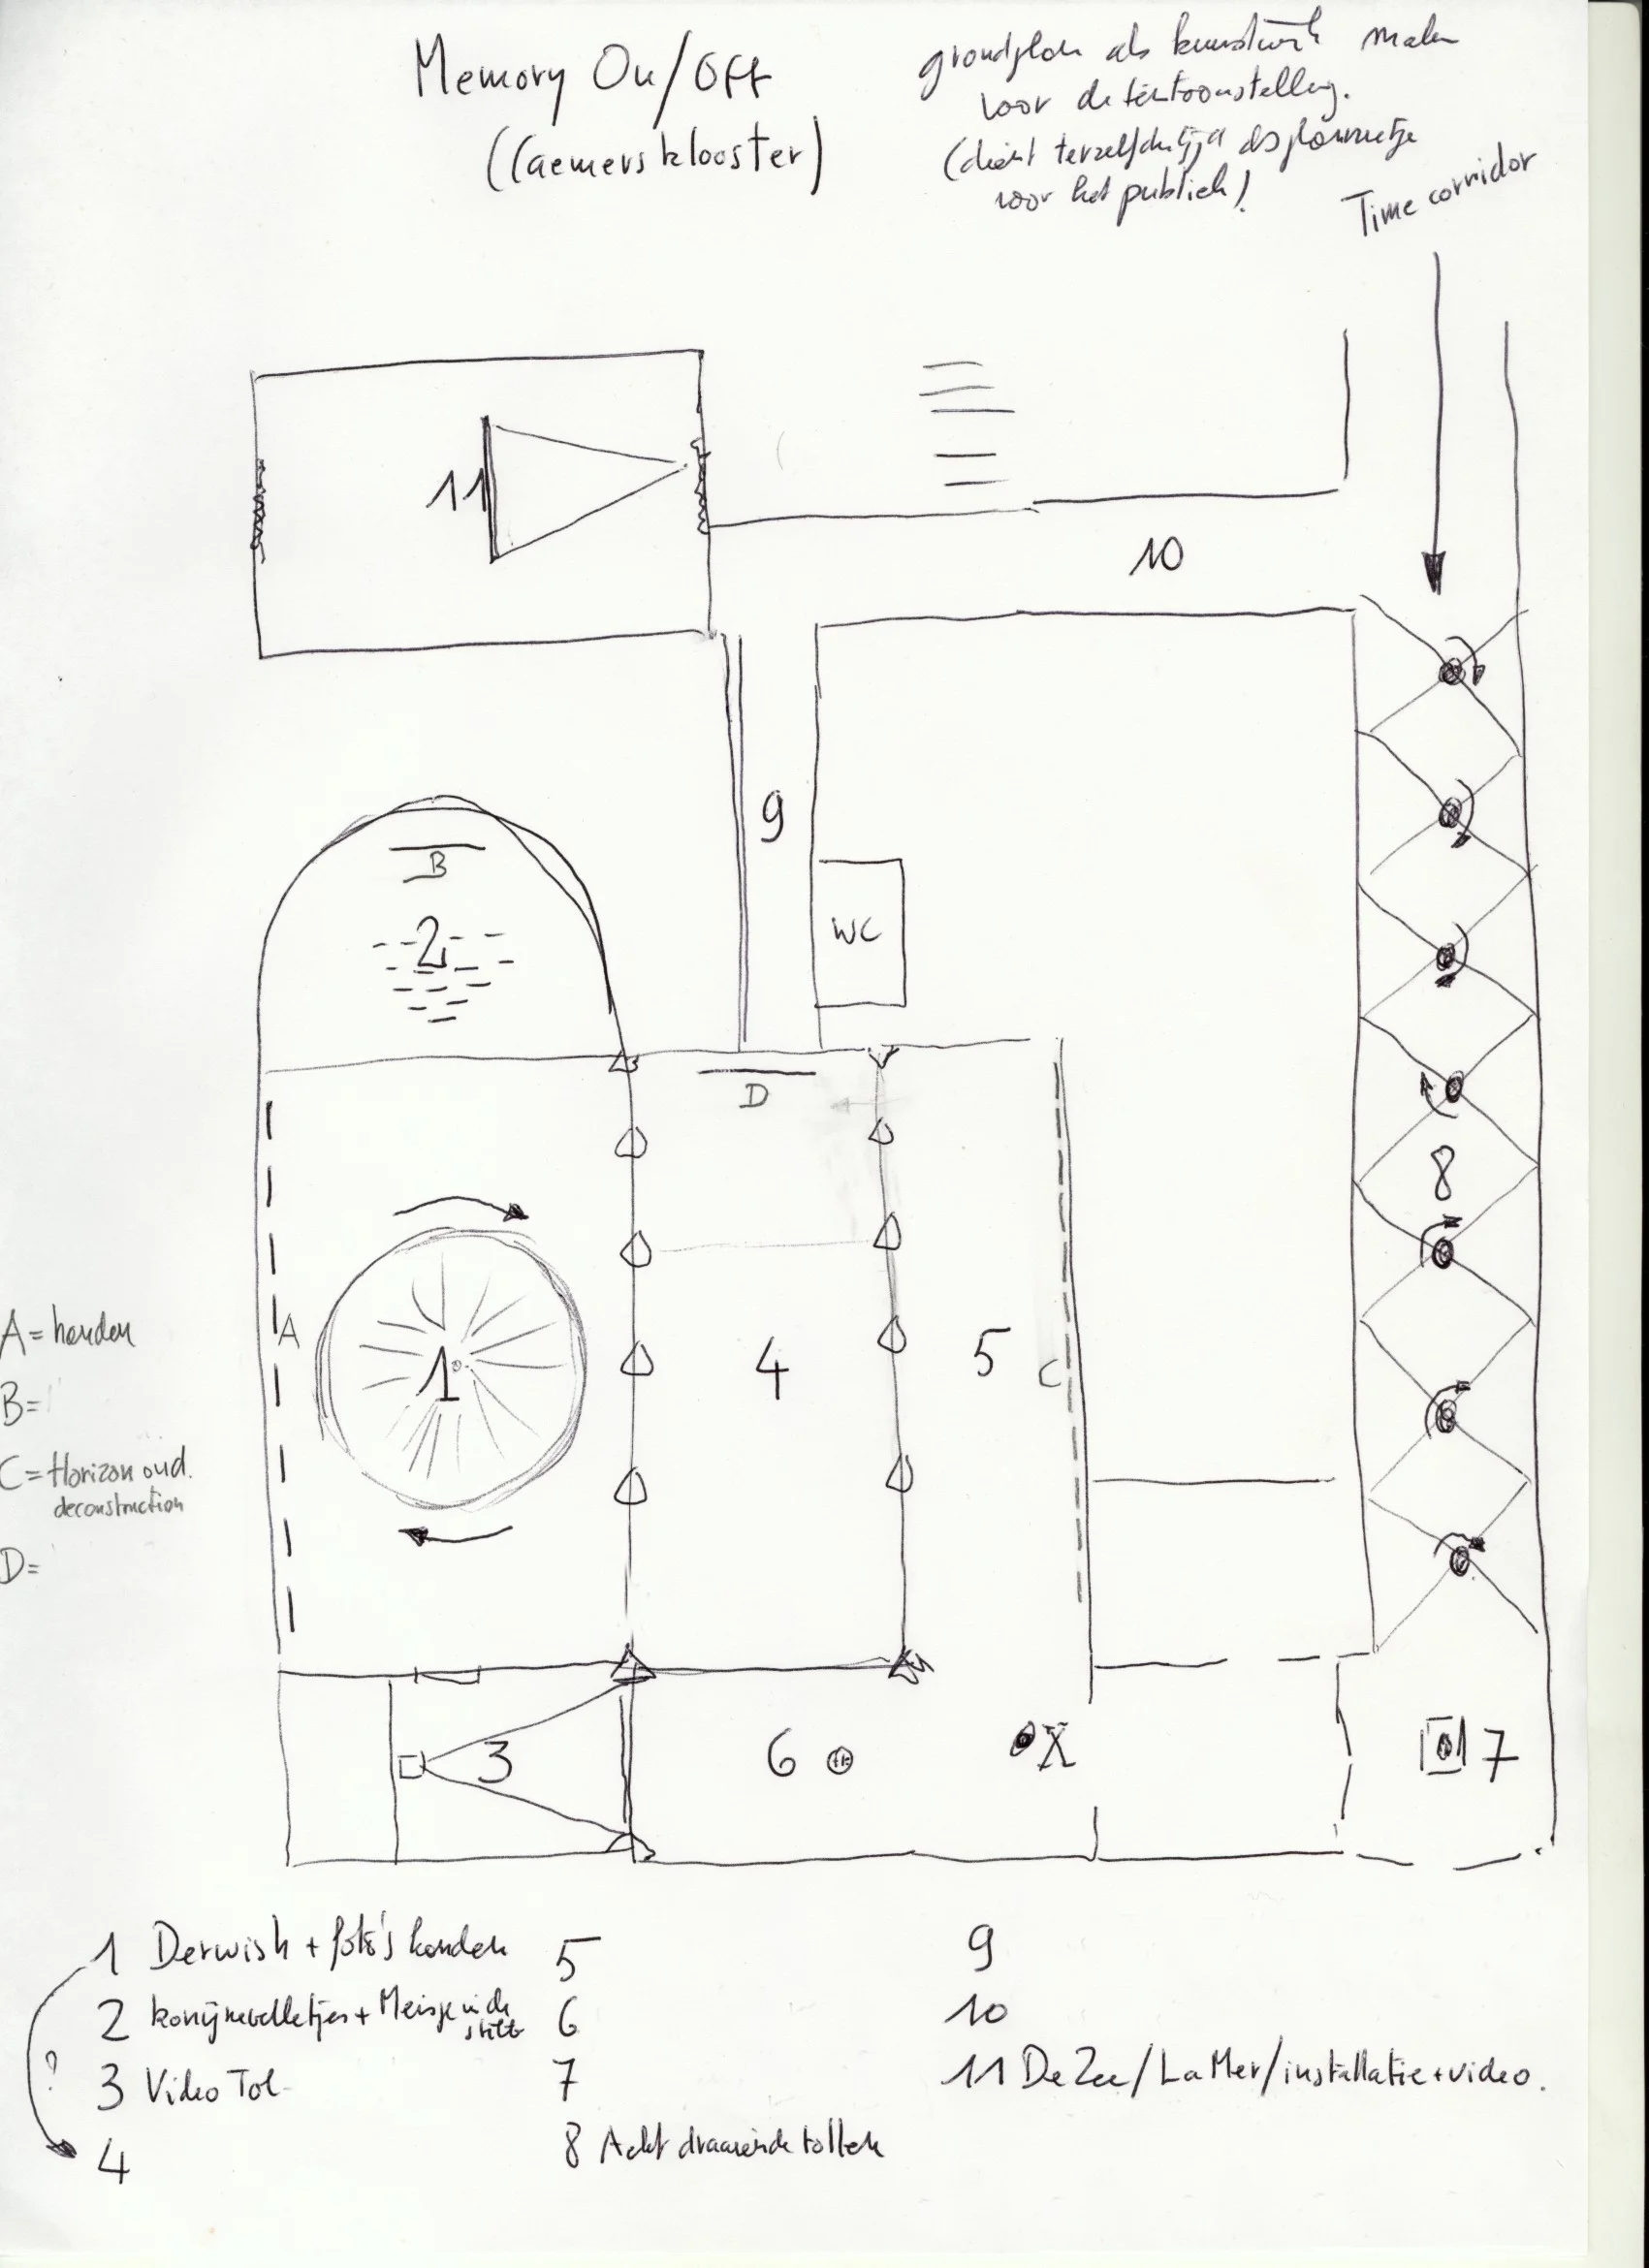 Memory On/Off
(Caemersklooster)
grondplan als kunstwerk maken
voor de tentoonstelling.
(dient terzelfdertijd als plannetje
voor het publiek)!
Time corridor
11
10
9
B
2
WC
D
8
A
1
4
5
C
A= handen
B=
C= Horizon oud.
deconstruction
D=
3
6
X
7
1 Derwish + foto's handen
2 konijnevelletjes + Meisje in de
stilte
3 Video Tol
?
4
5
6
7
8 Acht draaiende tollen
9
10
11 De Zee/La Mer/installatie+video.